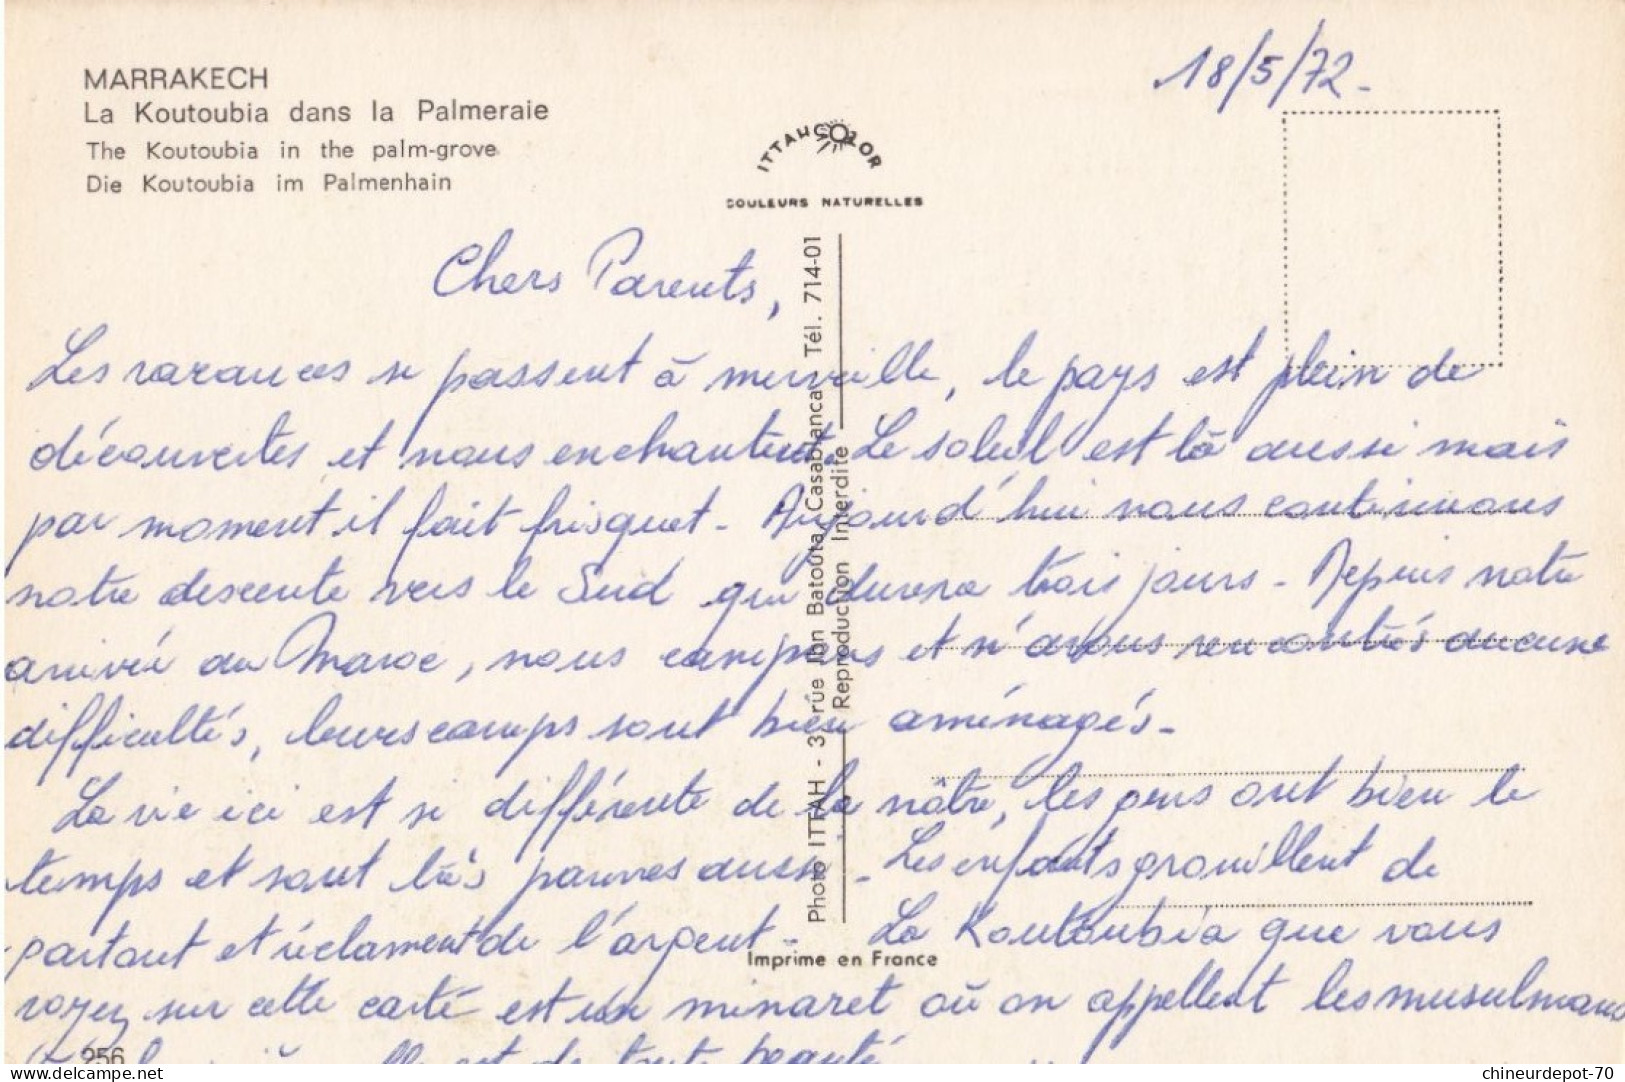 MARRAKECH
La Koutoubia dans la Palmeraie
The Koutoubia in the palm-grove
Die Koutoubia im Palmenhain
18/5/72.
ITTAHCOLOR
COULEURS NATURELLES
Photo ITTAH - 3, rûe Ibn Batouta, Casablanca Tél. 714-01
Reproduction Interdite
Chers Parents,
Les vacances se passent à merveille, le pays est plein de
découvertes et nous enchantent. Le soleil est là aussi mais
par moment il fait frisquet - Aujourd'hui nous continuons
notre descente vers le Sud qui durera trois jours - Depuis notre
arrivée au Maroc, nous campons et n'avons rencontrés aucune
difficultés, leurs camps sont bien aménagés -
La vie ici est si différente de la nôtre, les gens ont bien le
temps et sont très pauvres aussi - Les enfants grouillent de
partout et réclament de l'argent - La Koutoubia que vous
voyez sur cette carte est un minaret où on appellent les musulmans
elle est de toute beauté
Imprime en France
256
chineurdepot-70